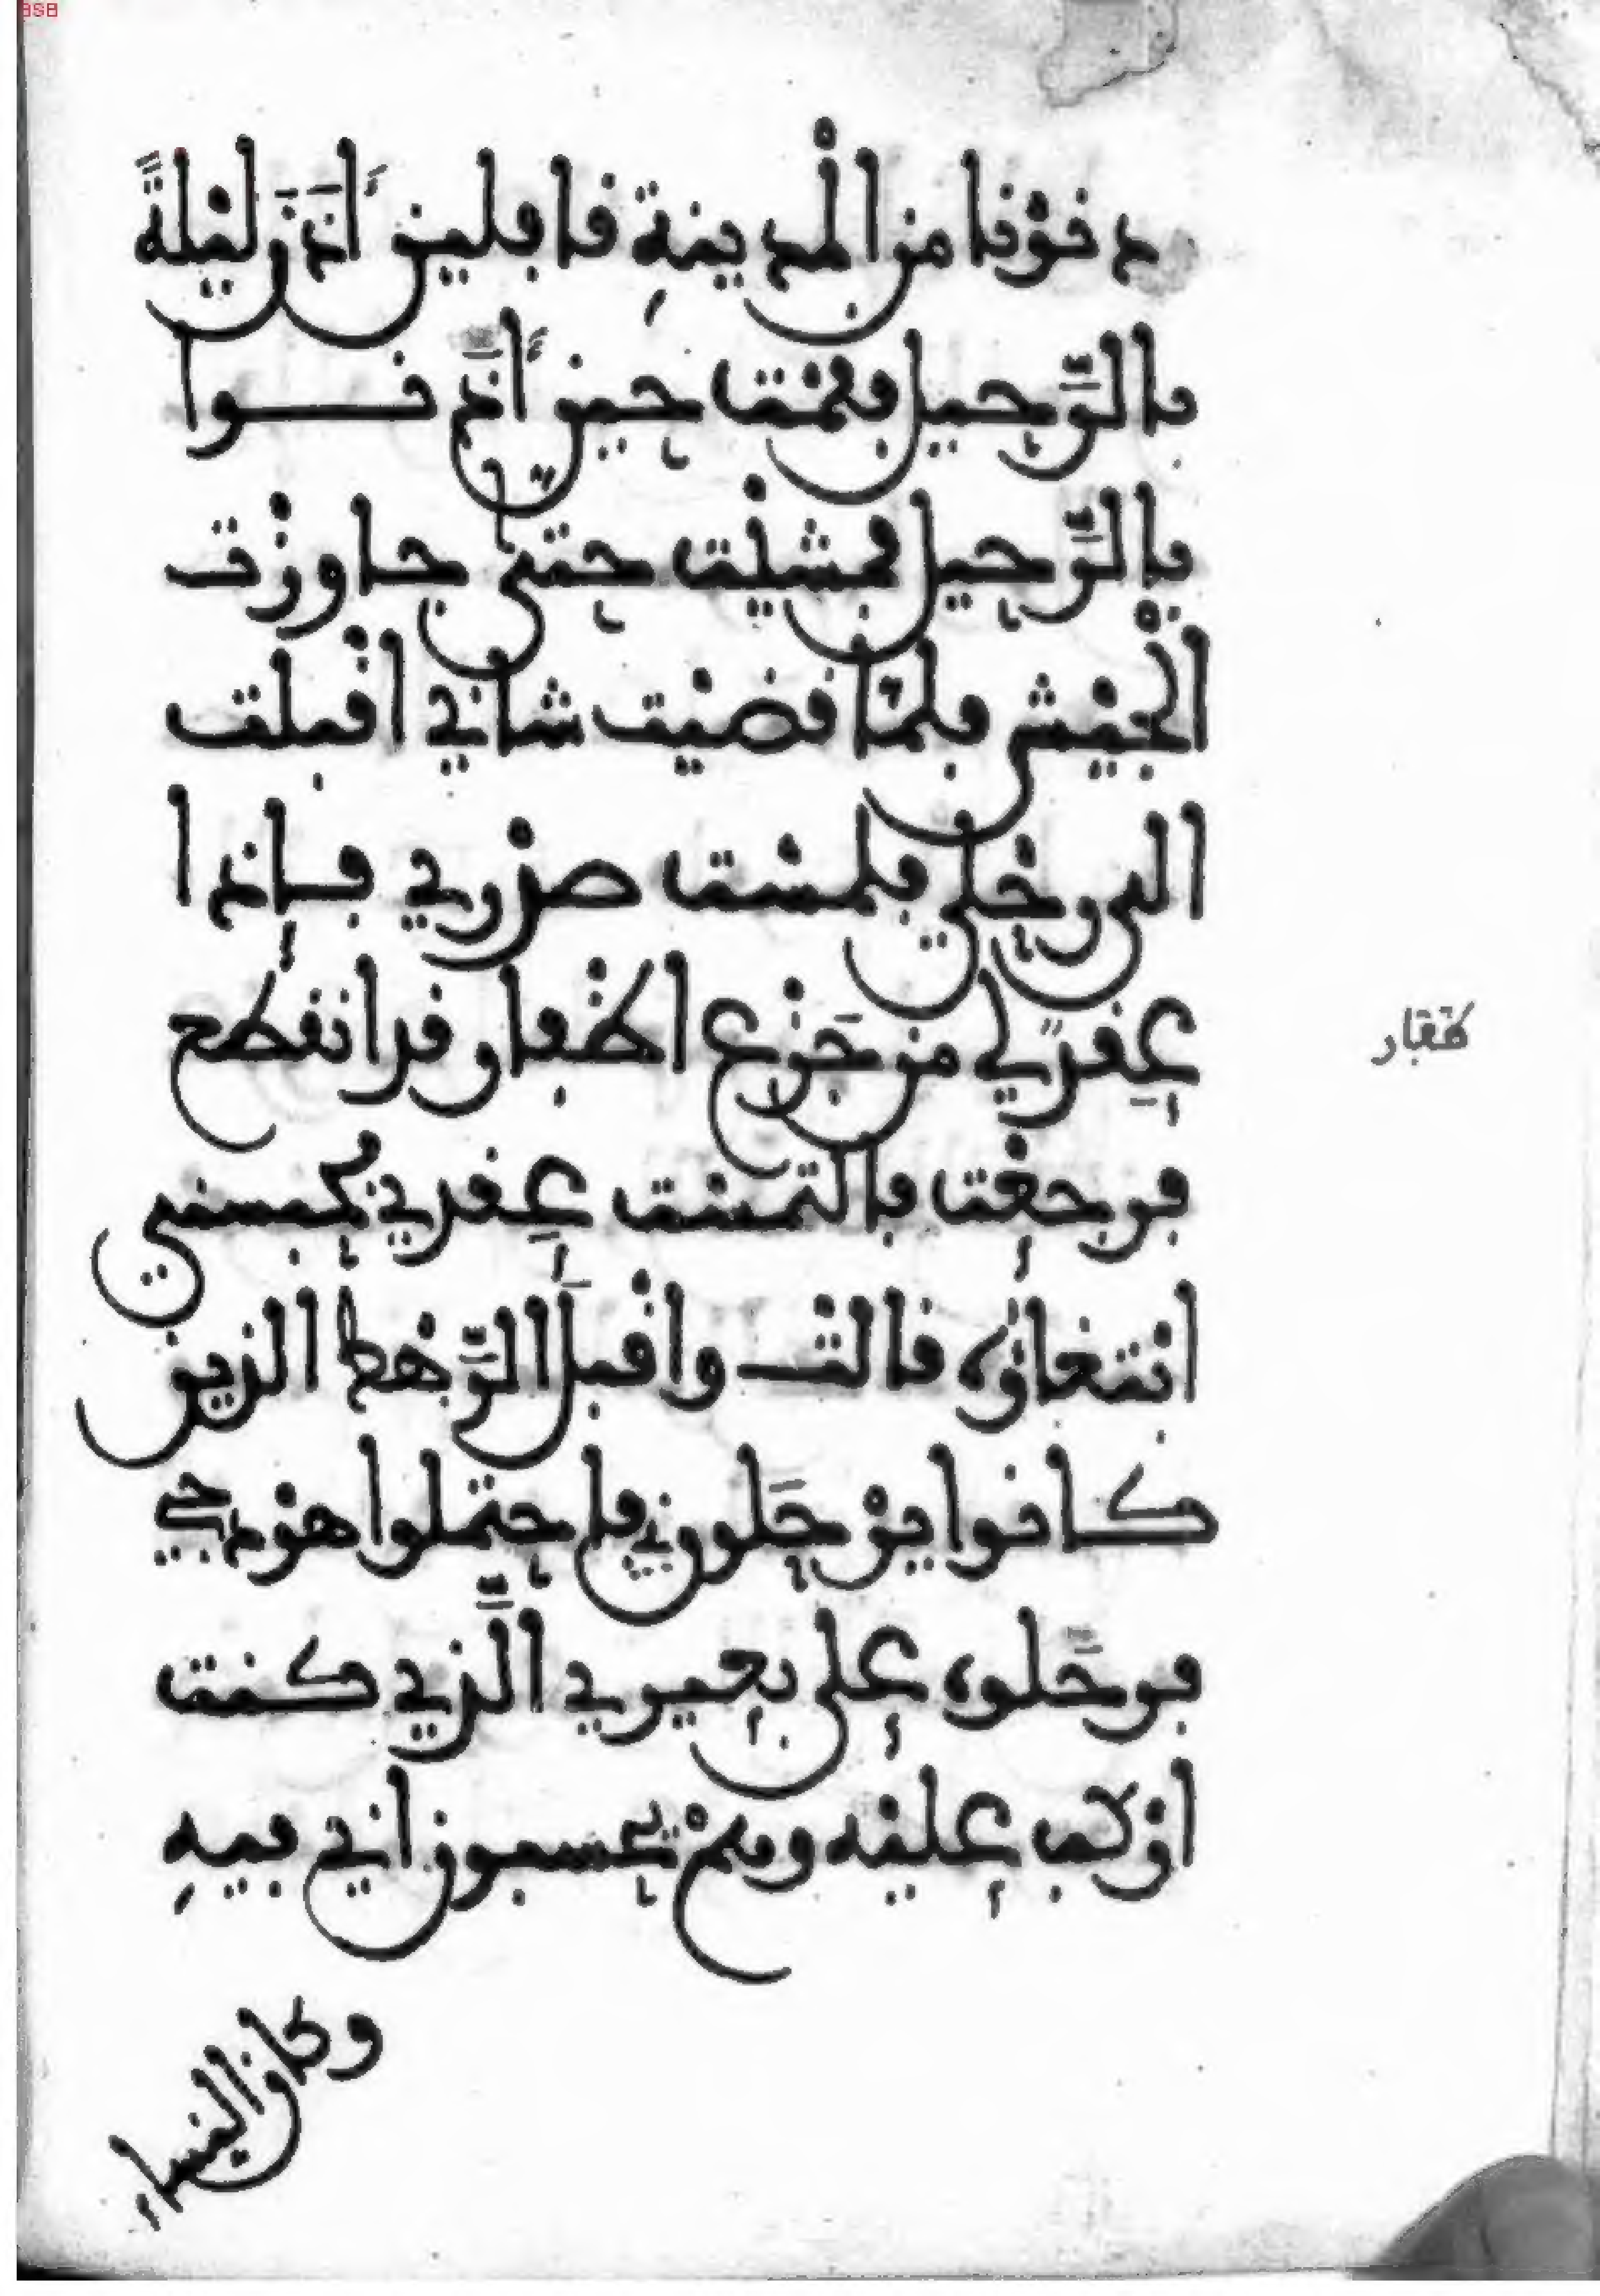 دنونا من المدينة قافلين آذن ليلة
بالرحيل فقمت حين آذنوا
بالرحيل فمشيت حتى جاوزت
الجيش فلما قضيت شاني اقبلت
الى رحلي فلمست صدري فاذا
عقد لي من جزع اظفار قد انقطع
فرجعت فالتمست عقدي فحبسني
ابتغاؤه قالت واقبل الرهط الذين
كانوا يرحلوني فاحتملوا هودجي
فرحلوه على بعيري الذي كنت
اركب عليه وهم يحسبون اني فيه
وكان النساء